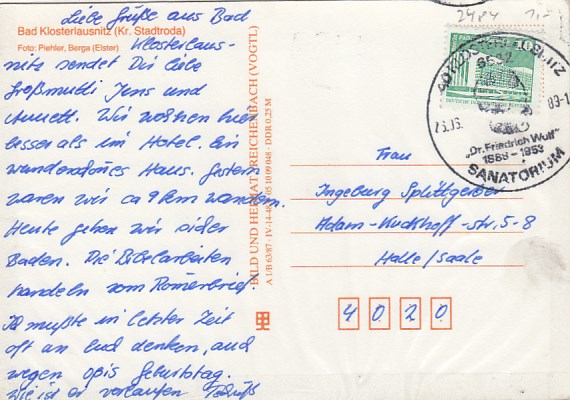 Liebe Grüße aus Bad
Bad Klosterlausnitz (Kr. Stadtroda)
Foto: Piehler, Berga (Elster)
Klosterlaus-
nitz sendet Dir liebe
Großmutti Jens und
Annett. Wir wohnen hier
besser als im Hotel. Ein
wundersames Haus. Gestern
waren wir ca 9 km wandern.
Heute gehen wir wieder
Baden. Die Bibelarbeiten
handeln vom Römerbrief.
Ich mußte in letzter Zeit
oft an Euch denken, auch
wegen Opis Geburtstag.
Wie ist er verlaufen
BILD UND HEIMAT REICHENBACH (VOGTL)
A 1/B 63/87 · IV-14-48 · 05 10 09 048 - DDR 0,25 M
2484 1,-
6532
"Dr. Friedrich Wolf"
1888 - 1953
SANATORIUM
Frau
Ingeburg Splittgerber
Adam-Kuckhoff-Str. 5-8
Halle/Saale
4020